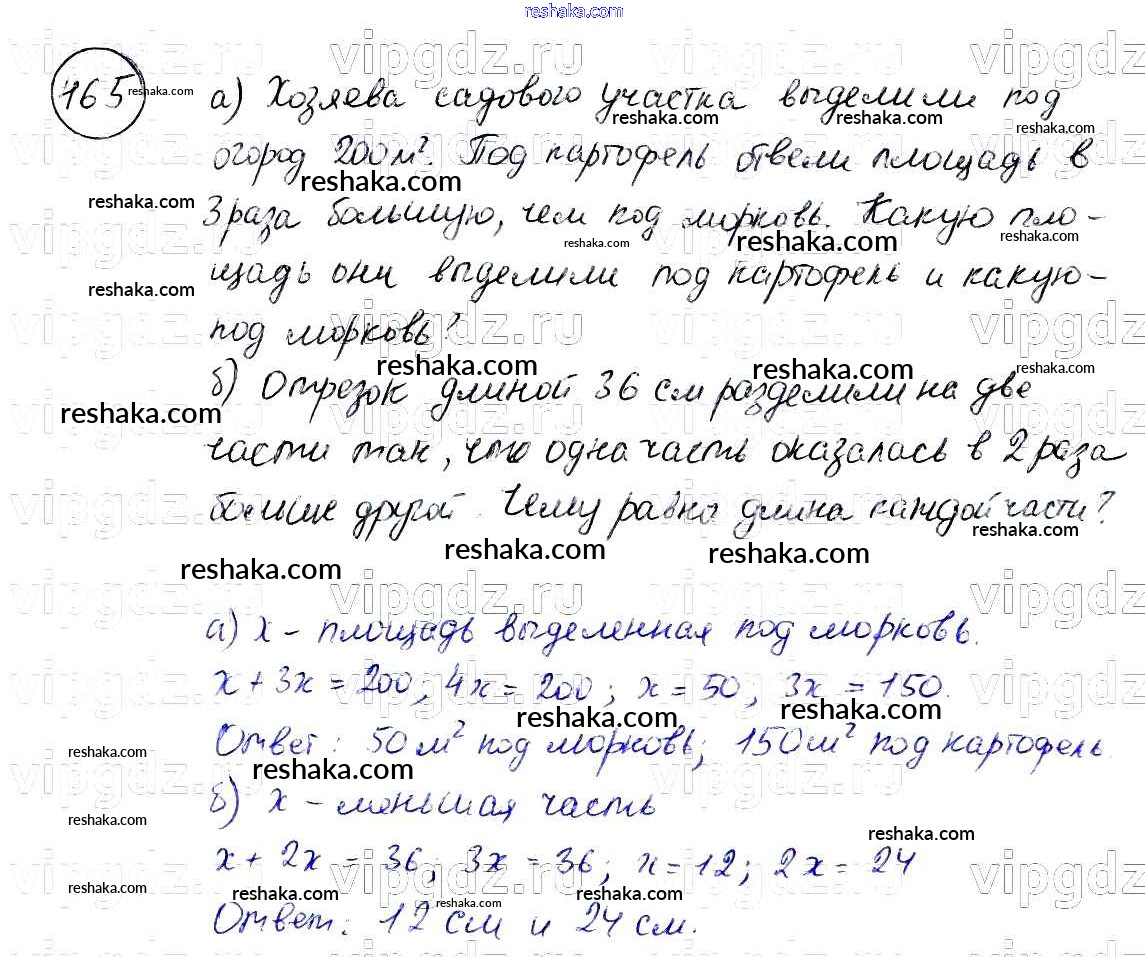 reshaka.com
165
а) Хозяева садового участка выделили под
огород 200 м². Под картофель отвели площадь в
3 раза большую, чем под морковь. Какую пло-
щадь они выделили под картофель и какую-
под морковь?
б) Отрезок длиной 36 см разделили на две
части так, что одна часть оказалась в 2 раза
больше другой. Чему равна длина каждой части?
а) x - площадь выделенная под морковь.
x + 3x = 200; 4x = 200; x = 50; 3x = 150.
Ответ: 50 м² под морковь; 150 м² под картофель.
б) x - меньшая часть
x + 2x = 36; 3x = 36; x = 12; 2x = 24
Ответ: 12 см и 24 см.